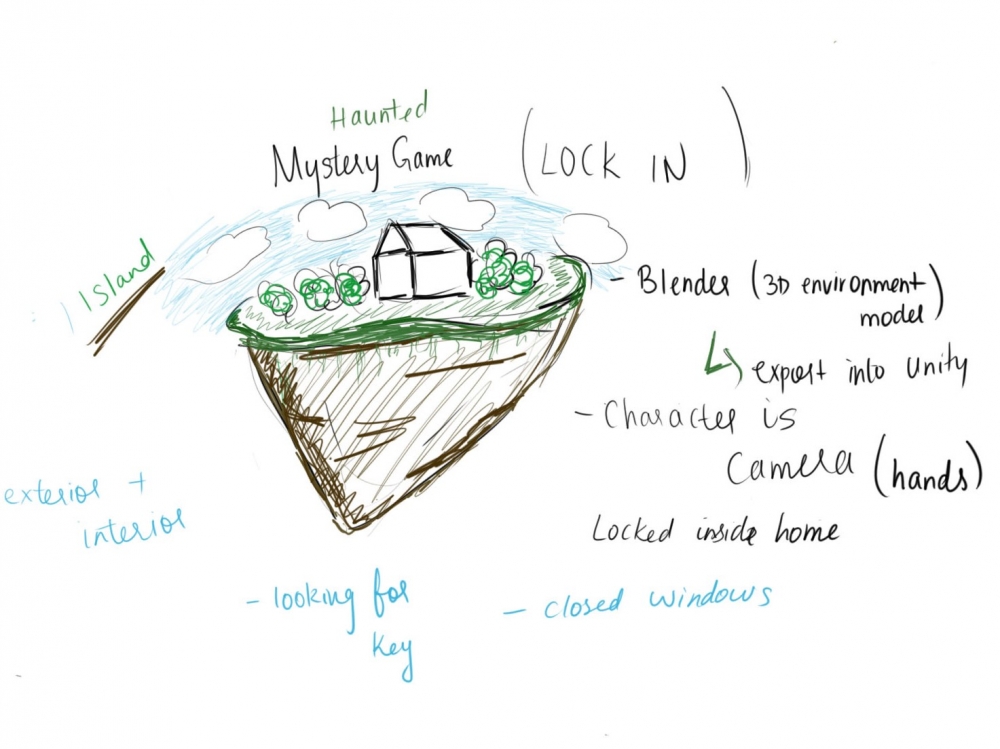 Haunted
Mystery Game
(LOCK IN)
Island
- Blender (3D environment
model)
↳ export into Unity
- Character is
Camera (hands)
Locked inside home
exterior +
interior
- looking for
key
- closed windows